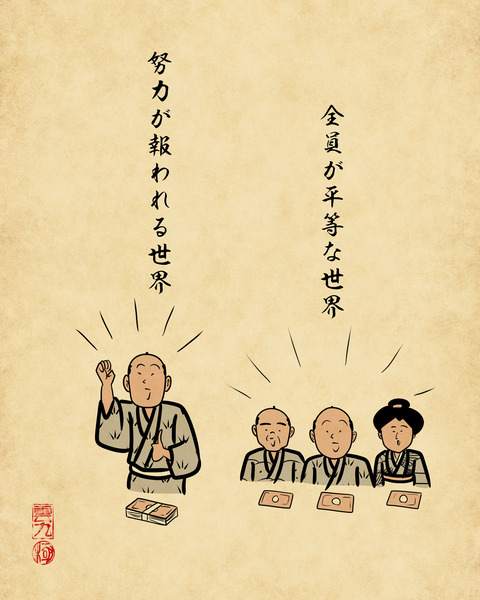 全員が平等な世界
努力が報われる世界